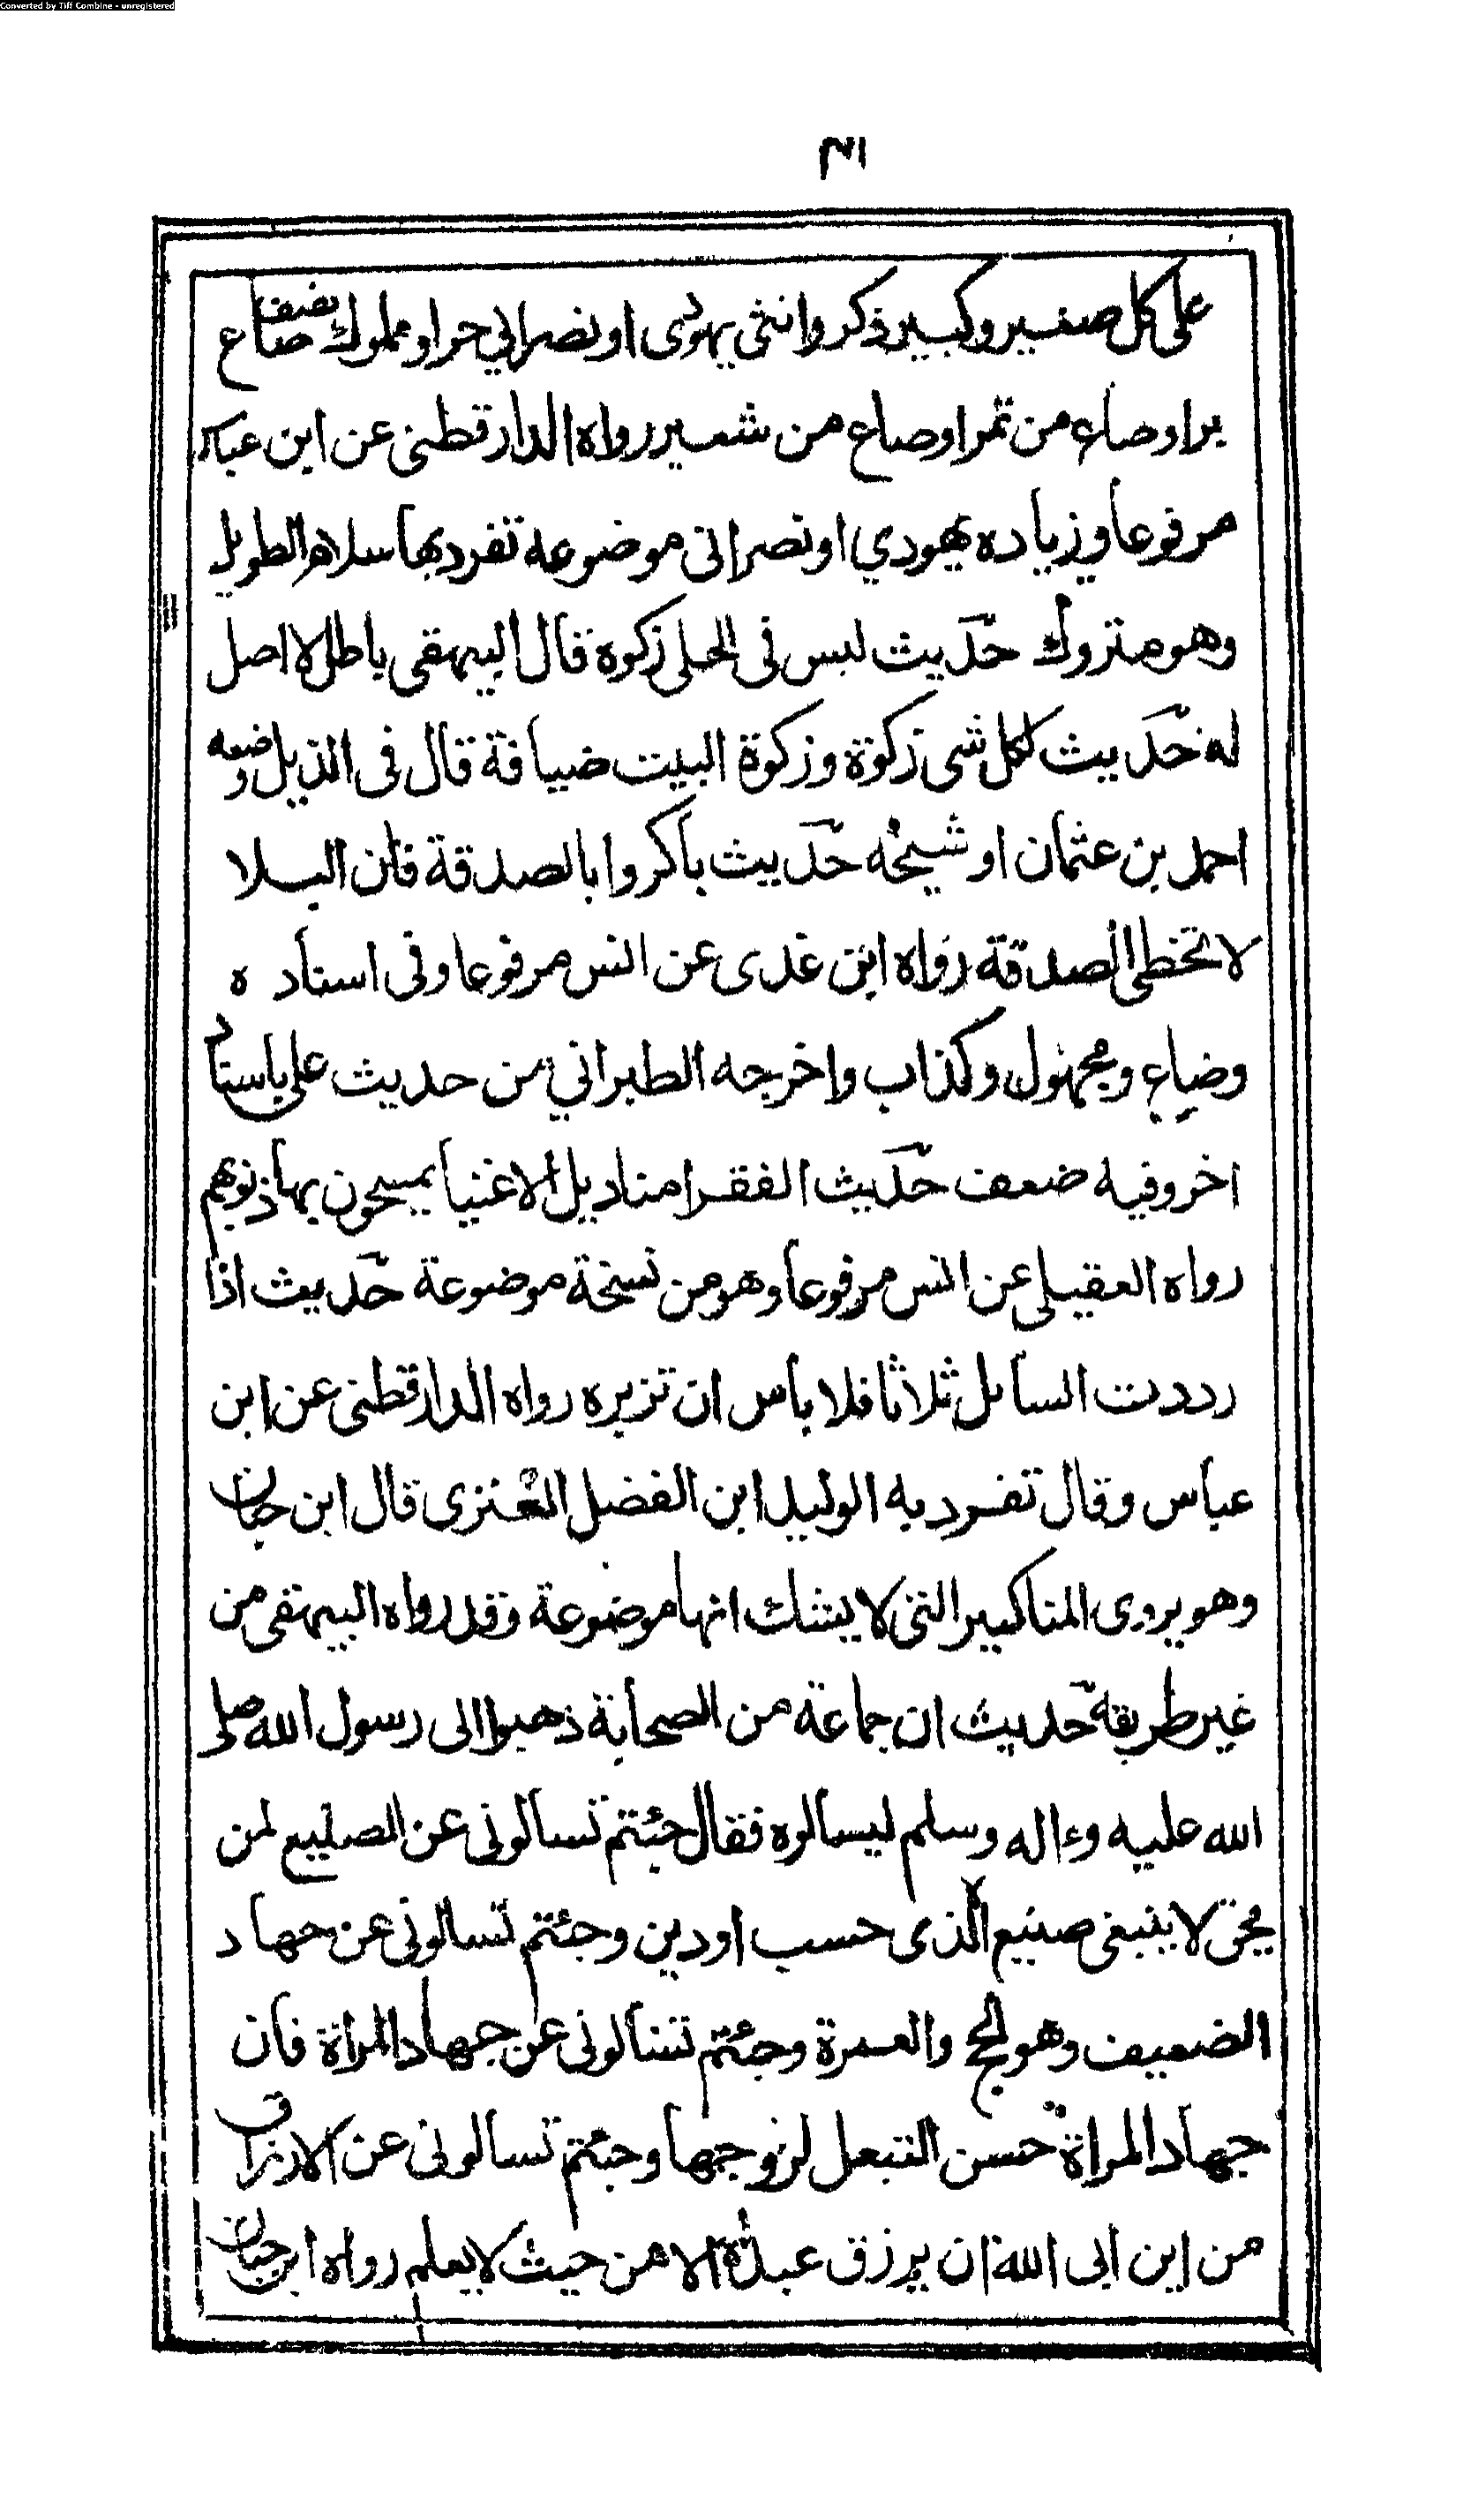 Converted by Tiff Combine - unregistered
٣١
على كل صغير وكبير ذكر وانثى يهودى او نصراني حر او مملوك نصف صاع
برا وصاع من تمر او صاع من شعير رواه الدارقطنى عن ابن عباس
مرفوعا وزياده يهودي او نصرانى موضوعة تفرد بها سلام الطويل
وهو متروك حديث ليس فى الحلى زكوة قال البيهقى باطل لا اصل
له حديث لكل شى زكوة وزكوة البيت ضيافة قال فى الذيل وضعه
احمد بن عثمان او شيخه حديث باكروا بالصدقة فان البلا
لا تخطى الصدقة رواه ابن عدى عن انس مرفوعا وفى اسناده
وضاع ومجهول وكذاب واخرجه الطبراني من حديث على باسناد
اخر وفيه ضعف حديث الفقرا مناديل الاغنيا يمسحون بها ذنوبهم
رواه العقيلى عن انس مرفوعا وهو من نسخة موضوعة حديث اذا
رددت السائل ثلاثا فلا باس ان تزبره رواه الدارقطنى عن ابن
عباس وقال تفرد به الوليد ابن الفضل العنزى قال ابن حبان
وهو يروى المناكير التى لا يشك انها موضوعة وقد رواه البيهقى من
غير طريقه حديث ان جماعة من الصحابة ذهبوا الى رسول الله صلى
الله عليه وءاله وسلم ليسالوه فقال جئتم تسالونى عن الصنيع لمن
يحق لا ينبغى صنيع الا لذى حسب او دين وجئتم تسالونى عن جهاد
الضعيف وهو الحج والعمرة وجئتم تسالونى عن جهاد المراة فان
جهاد المراة حسن التبعل لزوجها وجئتم تسالونى عن الارزاق
من اين ابى الله ان يرزق عبده الا من حيث لا يعلم رواه ابن حبان